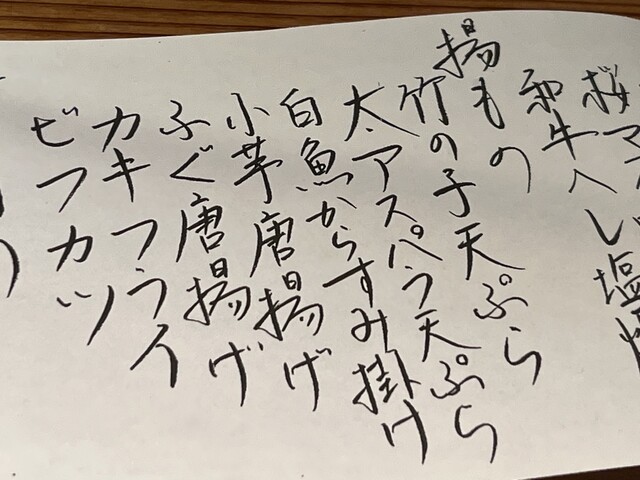 桜マス
和牛ヘレ塩焼
揚もの
竹の子天ぷら
太アスパラ天ぷら
白魚からすみ掛け
小芋唐揚げ
ふぐ唐揚げ
カキフライ
ビフカツ